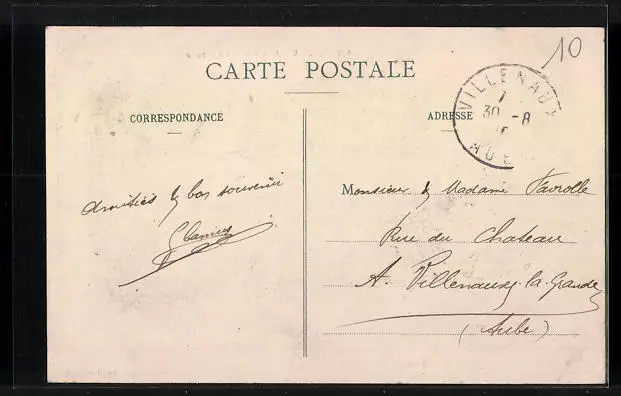 10
CARTE POSTALE
VILLENAUXE
30 -8
AUBE
CORRESPONDANCE
ADRESSE
Amitiés & bon souvenir
Monsieur & Madame Favrolle
Rue du Chateau
A Villenauxe-la-Grande
(Aube)